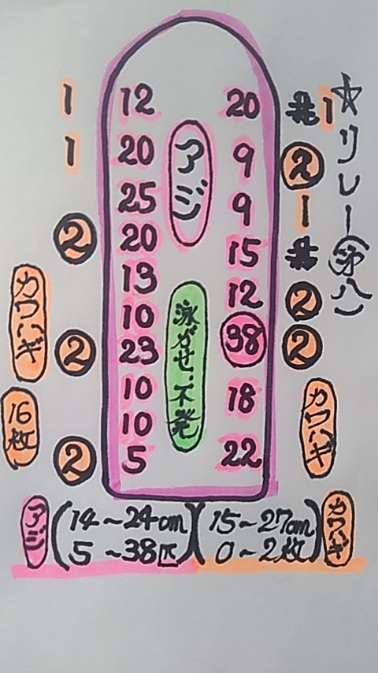 ☆リレー(第八)
1
1
②
②
②
カワハギ
16枚
12
20
25
20
13
10
23
10
10
5
アジ
泳がせ・不発
20
9
9
15
12
38
18
22
1
②
1
②
②
カワハギ
アジ (14~24cm 5~38匹)
(15~27cm 0~2枚) カワハギ